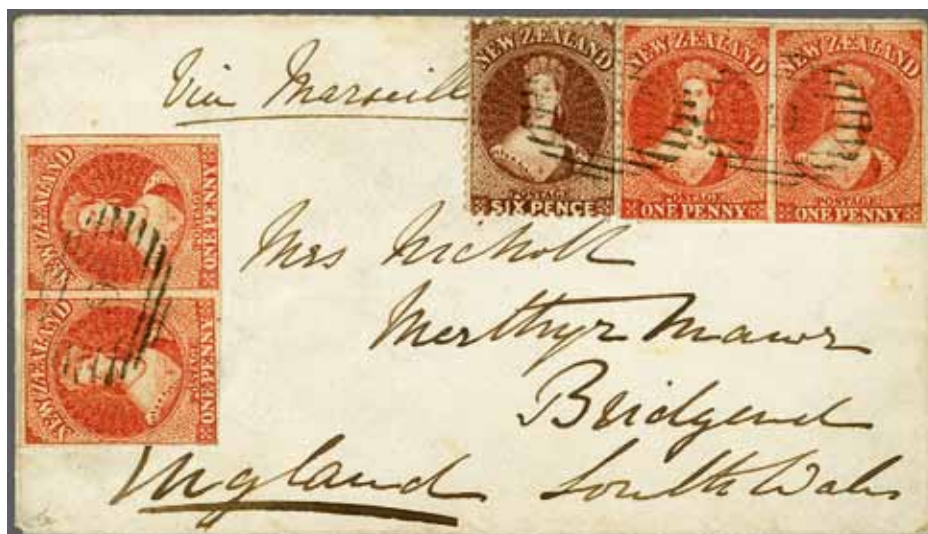 Via Marseill
NEW ZEALAND
POSTAGE
SIX PENCE
NEW ZEALAND
POSTAGE
ONE PENNY
NEW ZEALAND
POSTAGE
ONE PENNY
NEW ZEALAND
POSTAGE
ONE PENNY
NEW ZEALAND
POSTAGE
ONE PENNY
Mrs Nicholl
Merthyr Mawr
Bridgend
England South Wales